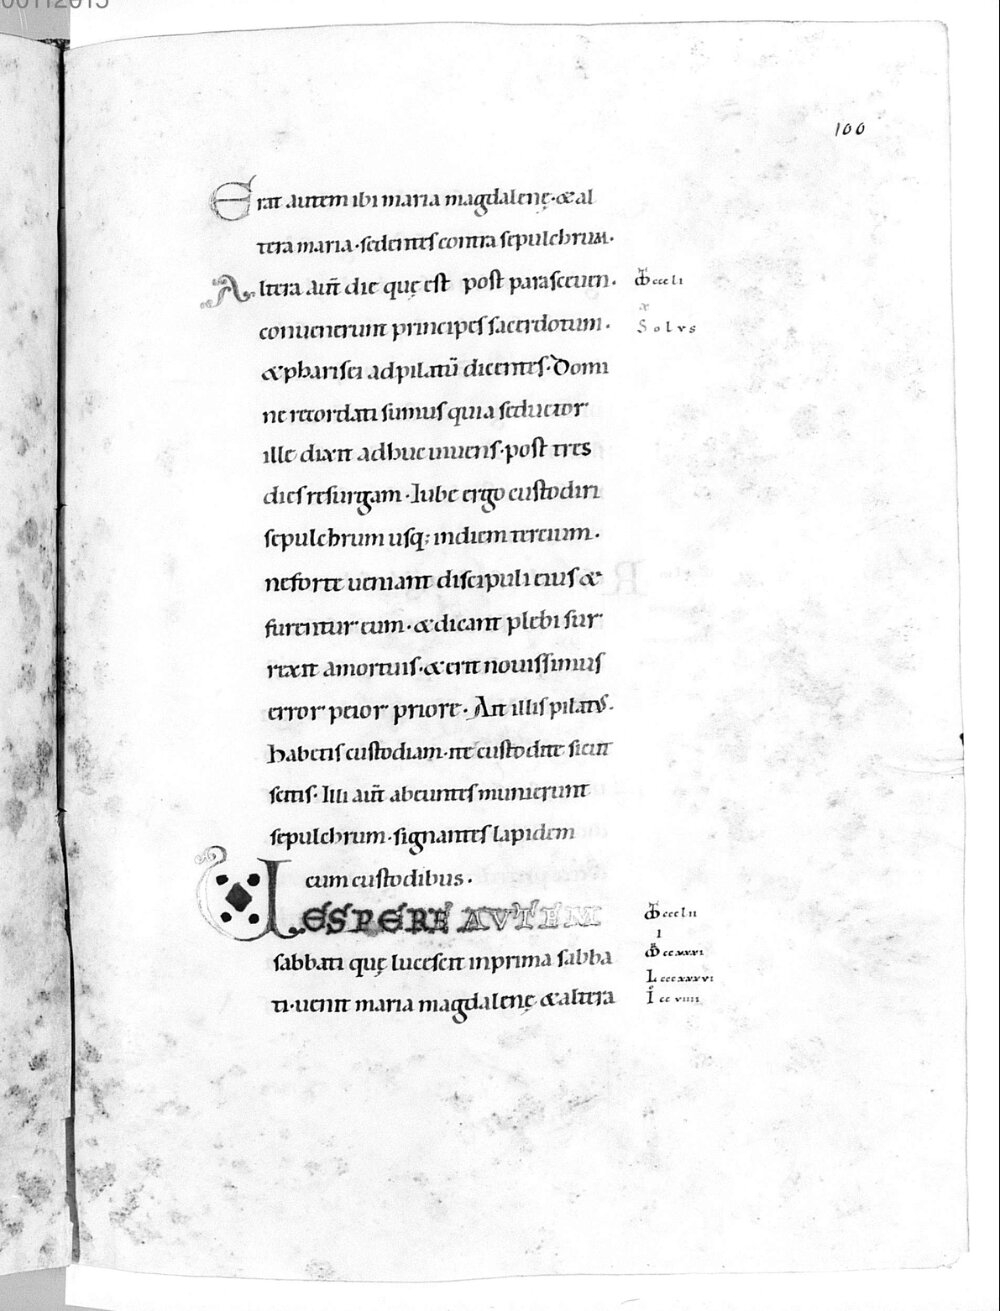 100
Erat autem ibi maria magdalenę · & al
tera maria · sedentes contra sepulchrum.
Altera aut̄ die quę est post parasceuen. M̄ cccli
conuenerunt principes sacerdotum. Solus
& pharisei ad pilatū dicentes · Domi
ne recordati sumus quia seductor
ille dixit adhuc uiuens · post tres
dies resurgam · Iube ergo custodiri
sepulchrum usq; in diem tercium.
ne forte ueniant discipuli eius &
furentur eum · & dicant plebi sur
rexit a mortuis · & erit nouissimus
error peior priore. Ait illis pilatus.
habetis custodiam · ite custodite sicut
scitis · Illi aut̄ abeuntes munierunt
sepulchrum · signantes lapidem
cum custodibus.
VESPERE AVTEM M̄ ccclii
I
sabbati quę lucescit in prima sabba M̄ ccxxxi
L cccxxxvi
ti · uenit maria magdalenę & altera I ccviiii